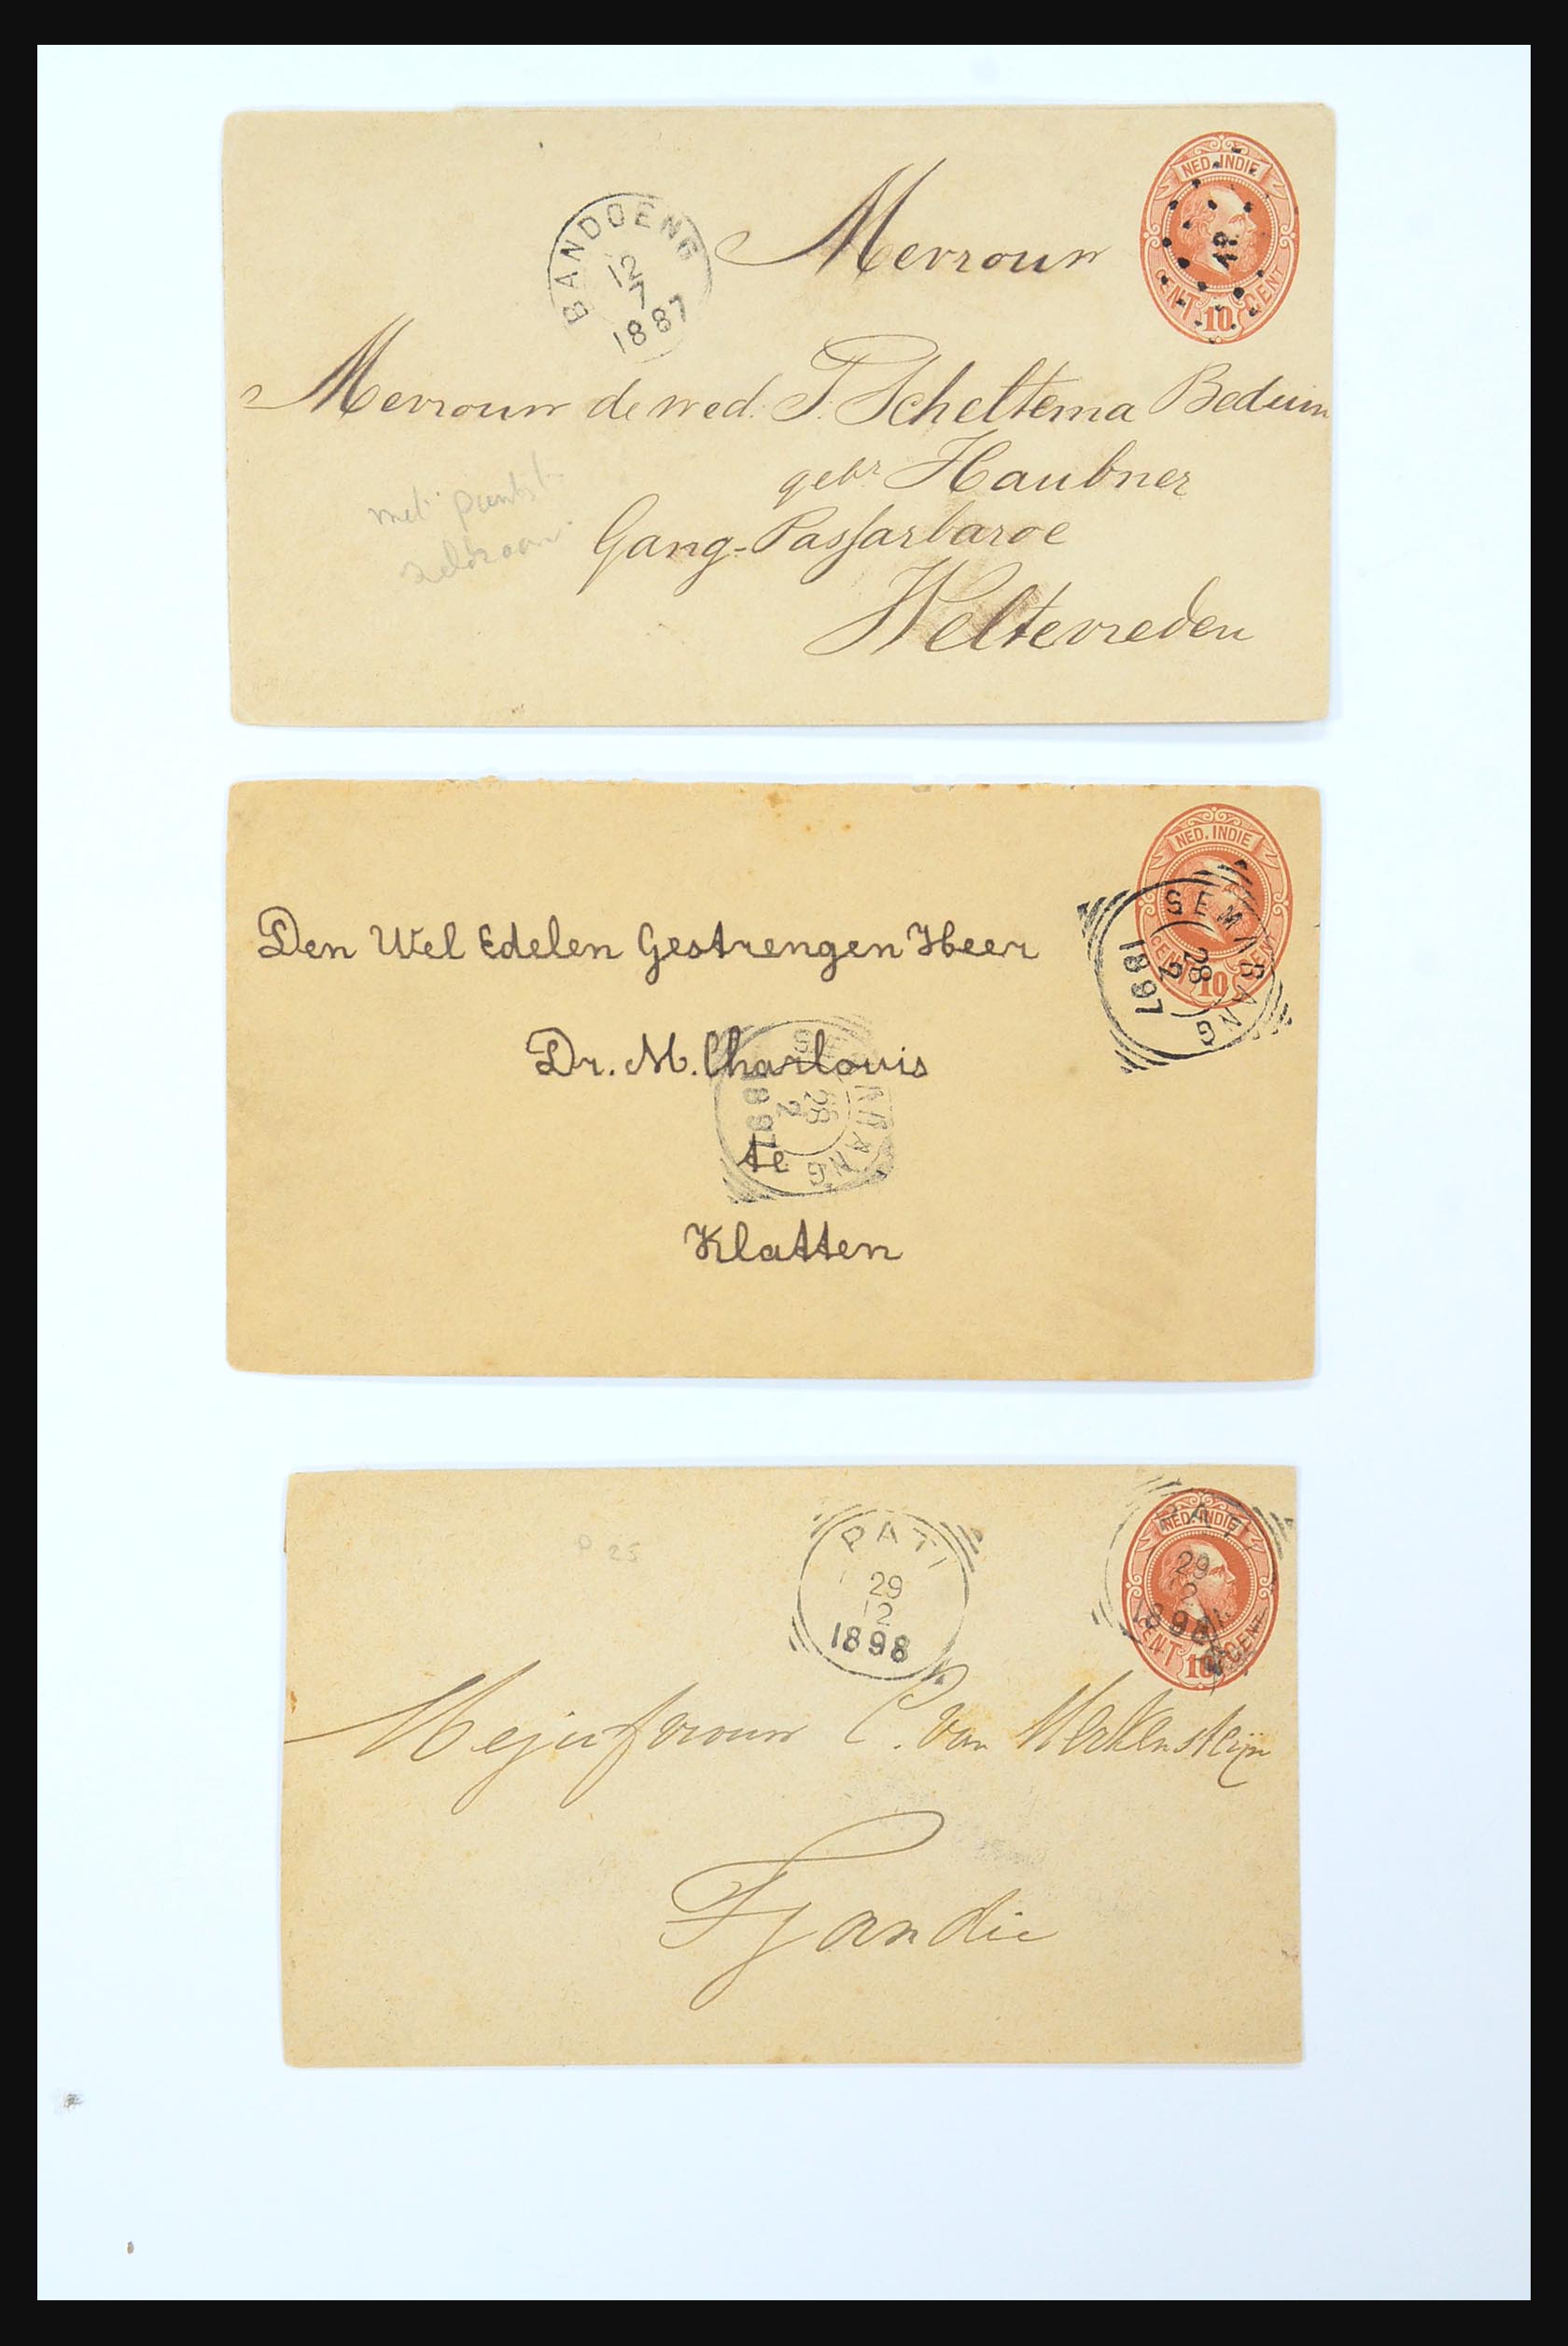 NED. INDIE
CENT 10 CENT
12
BANDOENG
12
7
1887
Mevrouw
Mevrouw de wed. T. Scheltema Beduin
gebr Haubner
Gang-Passarbaroe
Weltevreden
met puntst.
zeldzaam
NED. INDIE
CENT 10 CENT
SEMARANG
28
2
1897
Den Wel Edelen Gestrengen Heer
Dr. M. Charlouis
te
Klatten
SEMARANG
28
2
1897
P 25
PATI
29
12
1898
NED. INDIE
CENT 10 CENT
PATI
29
12
1898
Mejufvrouw C. van Merkensteijn
Tjandie